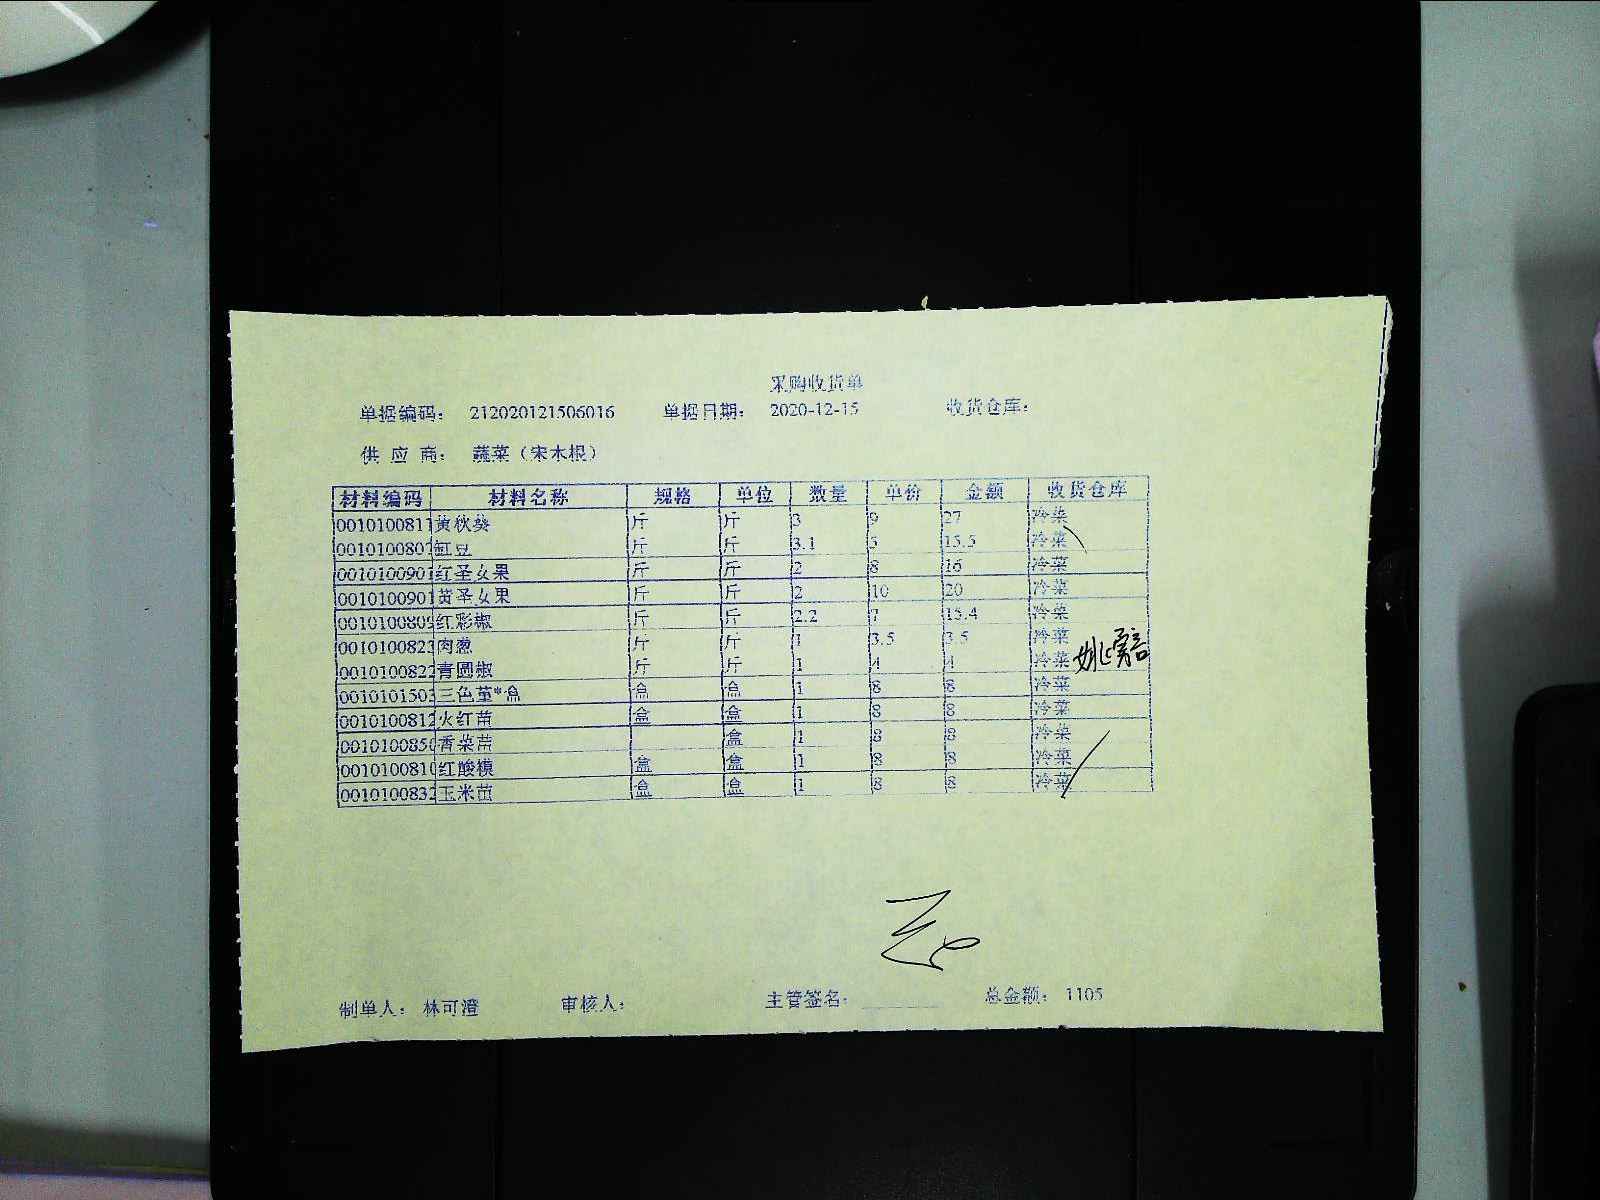 采购收货单
单据编码： 212020121506016 单据日期： 2020-12-15 收货仓库：
供 应 商： 蔬菜（宋木根）
材料编码 材料名称 规格 单位 数量 单价 金额 收货仓库
0010100811 黄秋葵 斤 斤 3 9 27 冷菜
001010080 豇豆 斤 斤 3.1 5 15.5 冷菜
0010100901 红圣女果 斤 斤 2 8 16 冷菜
0010100901 黄圣女果 斤 斤 2 10 20 冷菜
001010080 红彩椒 斤 斤 2.2 7 15.4 冷菜
001010082 肉葱 斤 斤 1 3.5 3.5 冷菜
001010082 青圆椒 斤 斤 1 4 4 冷菜
001010150 三色堇*盒 盒 盒 1 8 8 冷菜
001010081 火红苗 盒 盒 1 8 8 冷菜
001010085 香菜苗 盒 1 8 8 冷菜
001010081 红酸模 盒 盒 1 8 8 冷菜
001010083 玉米苗 盒 盒 1 8 8 冷菜
制单人： 林可澄 审核人： 主管签名： 总金额： 1105